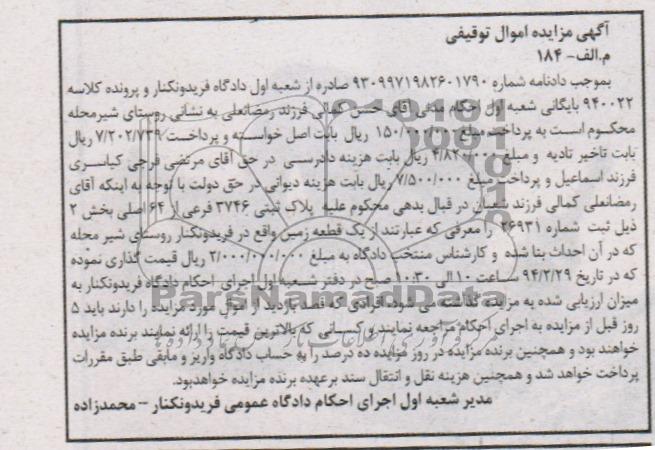 آگهی مزایده اموال توقیفی
م.الف- ۱۸۴
بموجب دادنامه شماره ۹۳۰۹۹۷۱۹۸۲۶۰۱۷۹۰ صادره از شعبه اول دادگاه فریدونکنار و پرونده کلاسه
۹۴۰۰۲۲ بایگانی شعبه اول احکام مدنی آقای حسن کمالی فرزند رمضانعلی به نشانی روستای شیرمحله
محکوم است به پرداخت مبلغ ۱۵۰/۰۰۰/۰۰۰ ریال بابت اصل خواسته و پرداخت ۷/۲۰۲/۷۳۹ ریال
بابت تاخیر تادیه و مبلغ ۴/۸۲۰/۰۰۰ ریال بابت هزینه دادرسی در حق آقای مرتضی فرجی کیاسری
فرزند اسماعیل و پرداخت مبلغ ۷/۵۰۰/۰۰۰ ریال بابت هزینه دیوانی در حق دولت با توجه به اینکه آقای
رمضانعلی کمالی فرزند شعبان در قبال بدهی محکوم علیه پلاک ثبتی ۳۷۴۶ فرعی از ۶۴ اصلی بخش ۲
ذیل ثبت شماره ۲۶۹۳۱ را معرفی که عبارتند از یک قطعه زمین واقع در فریدونکنار روستای شیر محله
که در آن احداث بنا شده و کارشناس منتخب دادگاه به مبلغ ۲/۰۰۰/۰۰۰/۰۰۰ ریال قیمت گذاری نموده
که در تاریخ ۹۴/۲/۲۹ ساعت ۱۰ الی ۱۰:۳۰ صبح در دفتر شعبه اول اجرای احکام دادگاه فریدونکنار به
میزان ارزیابی شده به مزایده گذاشته می شود، افرادی که قصد بازدید از اموال مورد مزایده را دارند باید ۵
روز قبل از مزایده به اجرای احکام مراجعه نمایند و کسانی که بالاترین قیمت را ارائه نمایند برنده مزایده
خواهند بود و همچنین برنده مزایده در روز مزایده ده درصد را به حساب دادگاه واریز و مابقی طبق مقررات
پرداخت خواهد شد و همچنین هزینه نقل و انتقال سند برعهده برنده مزایده خواهدبود.
مدیر شعبه اول اجرای احکام دادگاه عمومی فریدونکنار - محمدزاده
ParsNamadData